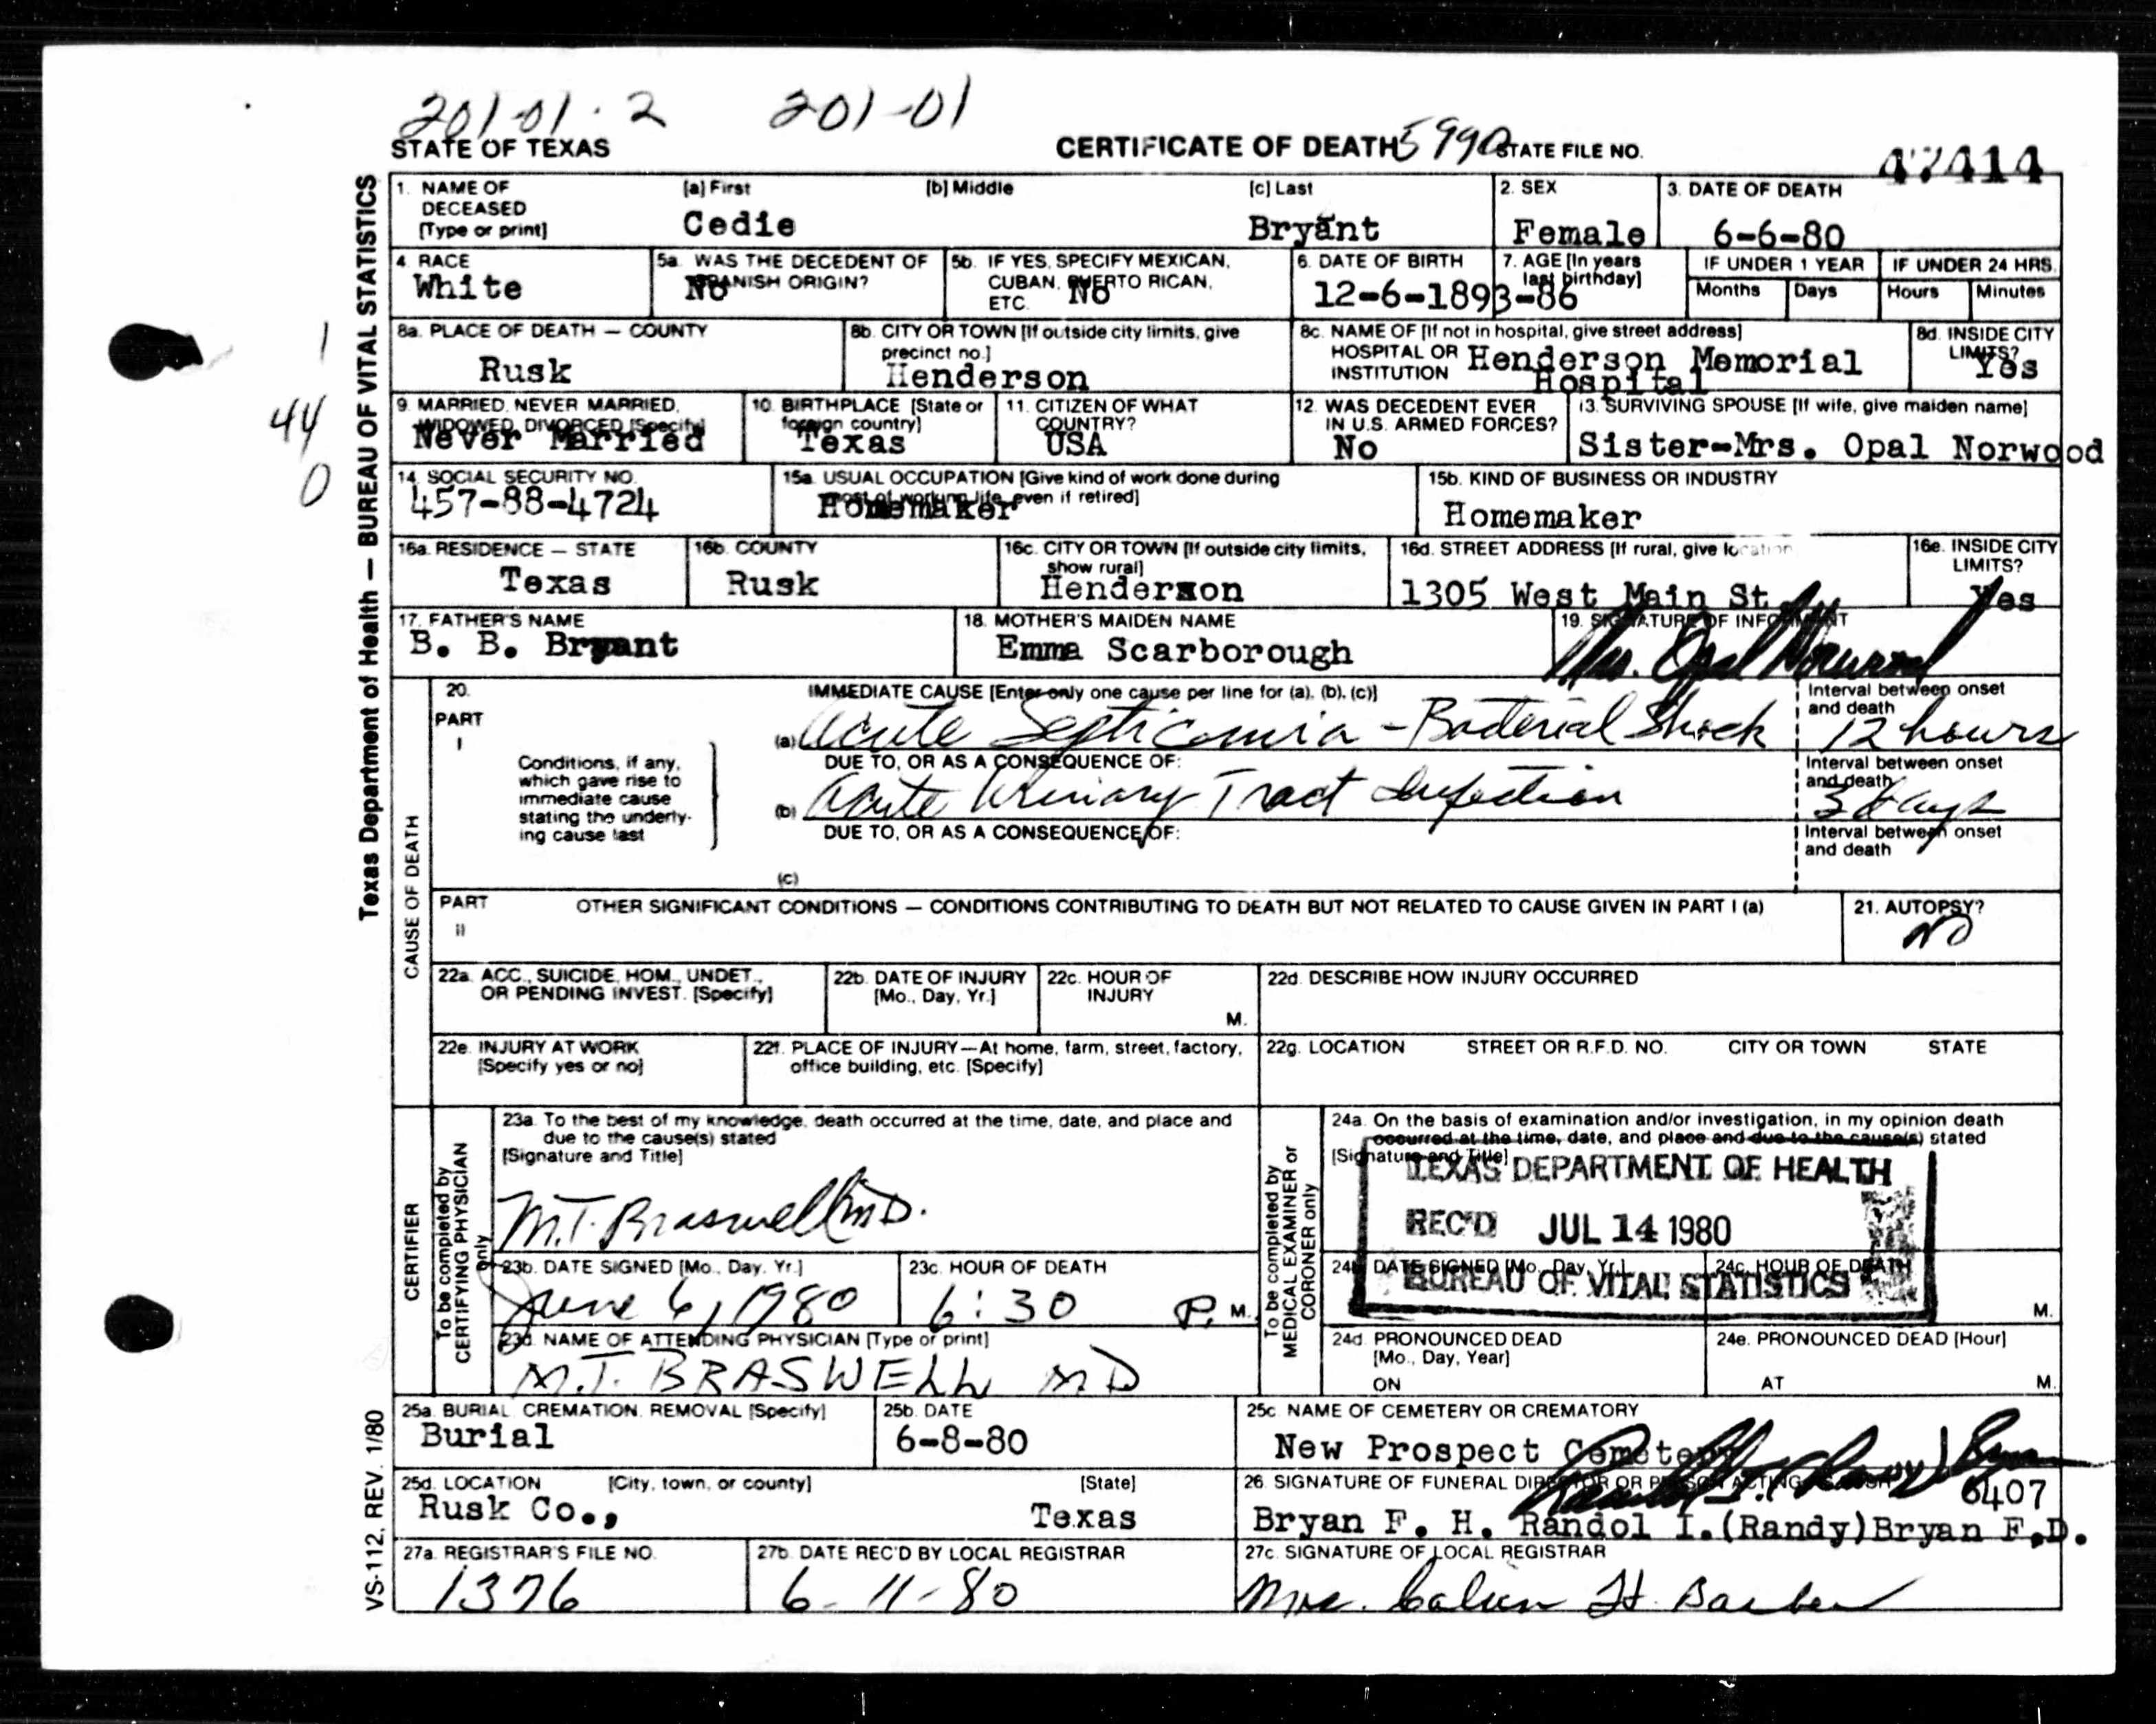 201-01.2 201-01
STATE OF TEXAS CERTIFICATE OF DEATH 5990 STATE FILE NO. 47414
Texas Department of Health — BUREAU OF VITAL STATISTICS
1
44
0
1. NAME OF DECEASED [Type or print] [a] First [b] Middle [c] Last 2. SEX 3. DATE OF DEATH
Cedie Bryant Female 6-6-80
4. RACE 5a. WAS THE DECEDENT OF SPANISH ORIGIN? 5b. IF YES, SPECIFY MEXICAN, CUBAN, PUERTO RICAN, ETC. 6. DATE OF BIRTH 7. AGE [In years last birthday] IF UNDER 1 YEAR IF UNDER 24 HRS.
Months Days Hours Minutes
White No No 12-6-1893-86
8a. PLACE OF DEATH — COUNTY 8b. CITY OR TOWN [If outside city limits, give precinct no.] 8c. NAME OF [If not in hospital, give street address] HOSPITAL OR INSTITUTION 8d. INSIDE CITY LIMITS?
Rusk Henderson Henderson Memorial Hospital Yes
9. MARRIED, NEVER MARRIED, WIDOWED, DIVORCED [Specify] 10. BIRTHPLACE [State or foreign country] 11. CITIZEN OF WHAT COUNTRY? 12. WAS DECEDENT EVER IN U.S. ARMED FORCES? 13. SURVIVING SPOUSE [If wife, give maiden name]
Never Married Texas USA No Sister-Mrs. Opal Norwood
14. SOCIAL SECURITY NO. 15a. USUAL OCCUPATION [Give kind of work done during most of working life, even if retired] 15b. KIND OF BUSINESS OR INDUSTRY
457-88-4724 Homemaker Homemaker
16a. RESIDENCE — STATE 16b. COUNTY 16c. CITY OR TOWN [If outside city limits, show rural] 16d. STREET ADDRESS [If rural, give location 16e. INSIDE CITY LIMITS?
Texas Rusk Henderson 1305 West Main St. Yes
17. FATHER'S NAME 18. MOTHER'S MAIDEN NAME 19. SIGNATURE OF INFORMANT
B. B. Bryant Emma Scarborough Mrs. Opal Norwood
CAUSE OF DEATH
20. PART I IMMEDIATE CAUSE [Enter only one cause per line for (a), (b), (c)] Interval between onset and death
(a) Acute Septicemia - Bacterial Shock 12 hours
Conditions, if any, which gave rise to immediate cause stating the underlying cause last
DUE TO, OR AS A CONSEQUENCE OF: Interval between onset and death
(b) Acute Urinary Tract Infection 3 days
DUE TO, OR AS A CONSEQUENCE OF: Interval between onset and death
(c)
PART II OTHER SIGNIFICANT CONDITIONS — CONDITIONS CONTRIBUTING TO DEATH BUT NOT RELATED TO CAUSE GIVEN IN PART I (a) 21. AUTOPSY?
NO
22a. ACC., SUICIDE, HOM., UNDET., OR PENDING INVEST. [Specify] 22b. DATE OF INJURY [Mo., Day, Yr.] 22c. HOUR OF INJURY M. 22d. DESCRIBE HOW INJURY OCCURRED
22e. INJURY AT WORK [Specify yes or no] 22f. PLACE OF INJURY—At home, farm, street, factory, office building, etc. [Specify] 22g. LOCATION STREET OR R.F.D. NO. CITY OR TOWN STATE
CERTIFIER
To be completed by CERTIFYING PHYSICIAN only
23a. To the best of my knowledge, death occurred at the time, date, and place and due to the cause(s) stated
[Signature and Title]
M.T. Braswell MD.
23b. DATE SIGNED [Mo., Day, Yr.] 23c. HOUR OF DEATH
June 6, 1980 6:30 P. M.
23d. NAME OF ATTENDING PHYSICIAN [Type or print]
M.T. BRASWELL MD
To be completed by MEDICAL EXAMINER or CORONER only
24a. On the basis of examination and/or investigation, in my opinion death occurred at the time, date, and place and due to the cause(s) stated
[Signature and Title]
TEXAS DEPARTMENT OF HEALTH
REC'D JUL 14 1980
BUREAU OF VITAL STATISTICS
24b. DATE SIGNED [Mo., Day, Yr.] 24c. HOUR OF DEATH M.
24d. PRONOUNCED DEAD [Mo., Day, Year] 24e. PRONOUNCED DEAD [Hour]
ON AT M.
25a. BURIAL, CREMATION, REMOVAL [Specify] 25b. DATE 25c. NAME OF CEMETERY OR CREMATORY
Burial 6-8-80 New Prospect Cemetery
25d. LOCATION [City, town, or county] [State] 26. SIGNATURE OF FUNERAL DIRECTOR OR PERSON ACTING AS SUCH
Rusk Co., Texas 6407
Bryan F. H. Randol I.(Randy)Bryan F.D.
27a. REGISTRAR'S FILE NO. 27b. DATE REC'D BY LOCAL REGISTRAR 27c. SIGNATURE OF LOCAL REGISTRAR
1376 6-11-80 Mrs. H. Barber
VS-112, REV. 1/80